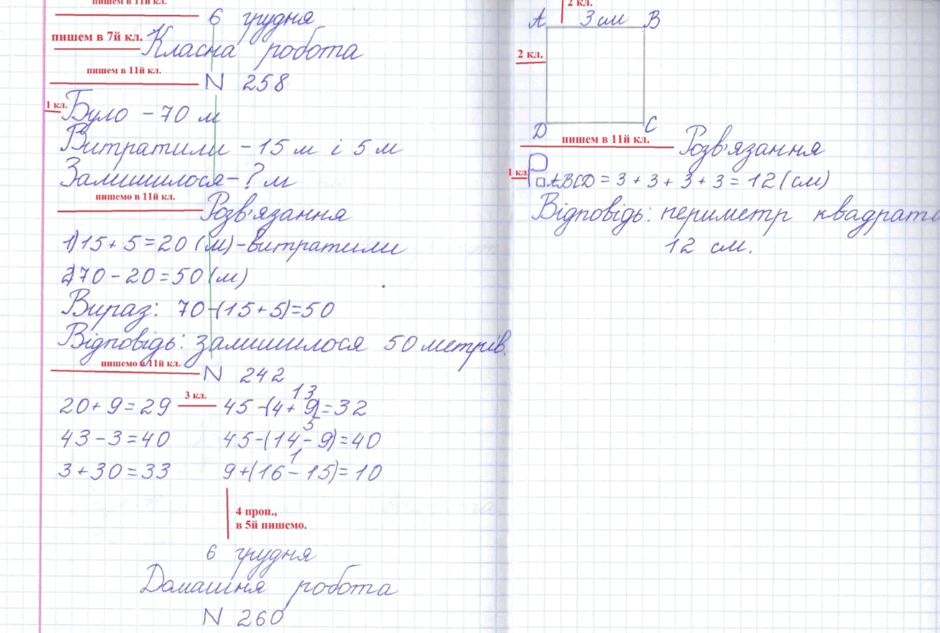 пишем в 11й кл.
6 грудня
пишем в 7й кл.
Класна робота
пишем в 11й кл.
N 258
1 кл.
Було - 70 м
Витратили - 15 м і 5 м
Залишилося - ? м
пишемо в 11й кл.
Розв'язання
1) 15 + 5 = 20 (м) - витратили
2) 70 - 20 = 50 (м)
Вираз: 70 - (15 + 5) = 50
Відповідь: залишилося 50 метрів.
пишемо в 11й кл.
N 242
13
20 + 9 = 29 3 кл. 45 - (4 + 9) = 32
5
43 - 3 = 40 45 - (14 - 9) = 40
1
3 + 30 = 33 9 + (16 - 15) = 10
4 проп.,
в 5й пишемо.
6 грудня
Домашня робота
N 260
2 кл.
A 3 см B
2 кл.
D C
пишем в 11й кл.
Розв'язання
1 кл.
P□ABCD = 3 + 3 + 3 + 3 = 12 (см)
Відповідь: периметр квадрата
12 см.